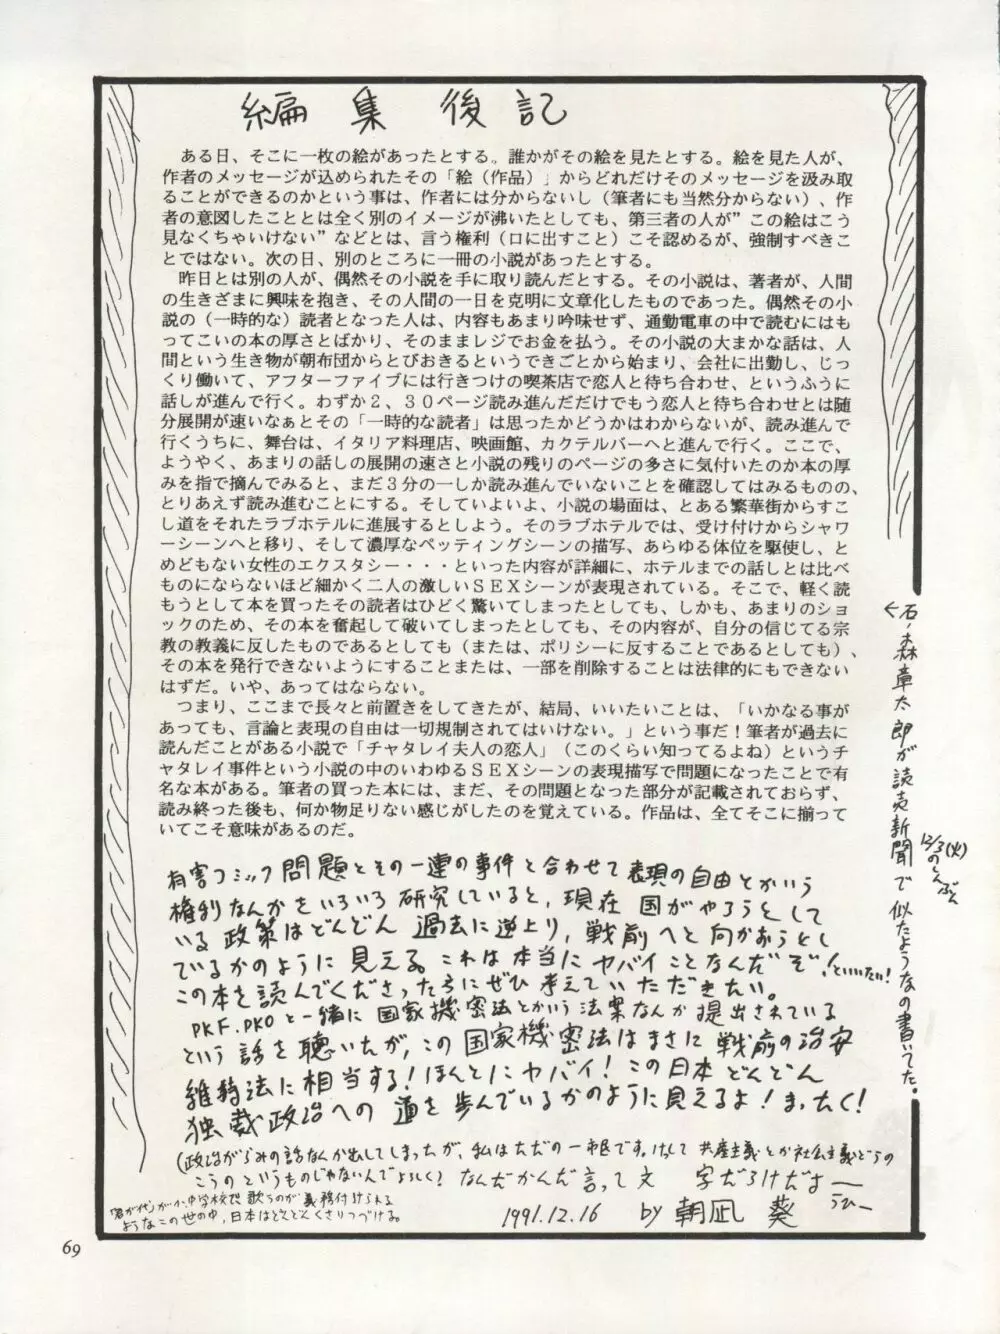 編集後記
ある日、そこに一枚の絵があったとする。誰かがその絵を見たとする。絵を見た人が、
作者のメッセージが込められたその「絵（作品）」からどれだけそのメッセージを汲み取
ることができるのかという事は、作者には分からないし（筆者にも当然分からない）、作
者の意図したこととは全く別のイメージが沸いたとしても、第三者の人が”この絵はこう
見なくちゃいけない”などとは、言う権利（口に出すこと）こそ認めるが、強制すべきこ
とではない。次の日、別のところに一冊の小説があったとする。
昨日とは別の人が、偶然その小説を手に取り読んだとする。その小説は、著者が、人間
の生きざまに興味を抱き、その人間の一日を克明に文章化したものであった。偶然その小
説の（一時的な）読者となった人は、内容もあまり吟味せず、通勤電車の中で読むにはも
ってこいの本の厚さとばかり、そのままレジでお金を払う。その小説の大まかな話は、人
間という生き物が朝布団からとびおきるというできごとから始まり、会社に出勤し、じっ
くり働いて、アフターファイブには行きつけの喫茶店で恋人と待ち合わせ、というふうに
話しが進んで行く。わずか２、３０ページ読み進んだだけでもう恋人と待ち合わせとは随
分展開が速いなぁとその「一時的な読者」は思ったかどうかはわからないが、読み進んで
行くうちに、舞台は、イタリア料理店、映画館、カクテルバーへと進んで行く。ここで、
ようやく、あまりの話しの展開の速さと小説の残りのページの多さに気付いたのか本の厚
みを指で摘んでみると、まだ３分の一しか読み進んでいないことを確認してはみるものの、
とりあえず読み進むことにする。そしていよいよ、小説の場面は、とある繁華街からすこ
し道をそれたラブホテルに進展するとしよう。そのラブホテルでは、受け付けからシャワ
ーシーンへと移り、そして濃厚なペッティングシーンの描写、あらゆる体位を駆使し、と
めどもない女性のエクスタシー・・・といった内容が詳細に、ホテルまでの話しとは比べ
ものにならないほど細かく二人の激しいＳＥＸシーンが表現されている。そこで、軽く読
もうとして本を買ったその読者はひどく驚いてしまったとしても、しかも、あまりのショ
ックのため、その本を奮起して破いてしまったとしても、その内容が、自分の信じてる宗
教の教義に反したものであるとしても（または、ポリシーに反することであるとしても）、
その本を発行できないようにすることまたは、一部を削除することは法律的にもできない
はずだ。いや、あってはならない。
つまり、ここまで長々と前置きをしてきたが、結局、いいたいことは、「いかなる事が
あっても、言論と表現の自由は一切規制されてはいけない。」という事だ！筆者が過去に
読んだことがある小説で「チャタレイ夫人の恋人」（このくらい知ってるよね）というチ
ャタレイ事件という小説の中のいわゆるＳＥＸシーンの表現描写で問題になったことで有
名な本がある。筆者の買った本には、まだ、その問題となった部分が記載されておらず、
読み終った後も、何か物足りない感じがしたのを覚えている。作品は、全てそこに揃って
いてこそ意味があるのだ。
有害コミック問題とその一連の事件と合わせて表現の自由とかいう
権利なんかをいろいろ研究していると、現在 国がやろうとして
いる政策はどんどん過去に逆上り、戦前へと向かおうとし
でいるかのように見える。これは本当にヤバイことなんだぞ！といいたい！
この本を読んでくださったちにぜひ考えていただきたい。
PKF.PKOと一緒に国家機密法とかいう法案なんか提出されている
という話を聴いたが、この国家機密法はまさに戦前の治安
維持法に相当する！ほんとにヤバイ！この日本どんどん
独裁政治への道を歩んでいるかのように見えるよ！まったく！
(政治がらみの話なんか出してしまったが、私はただの一市民です。けっして共産主義とか社会主義どうの
こうのというものじゃないんでよろしく！なんだかんだ言って文字だらけだよー
うひー
「君が代」が小、中学校で歌うのが義務付けられる
ようなこの世の中、日本はどんどんくさりつづける。
1991.12.16 by 朝凪 葵
←石ノ森章太郎が読売新聞で似たようなの書いてた。
12/3(火)
のしんぶん
69